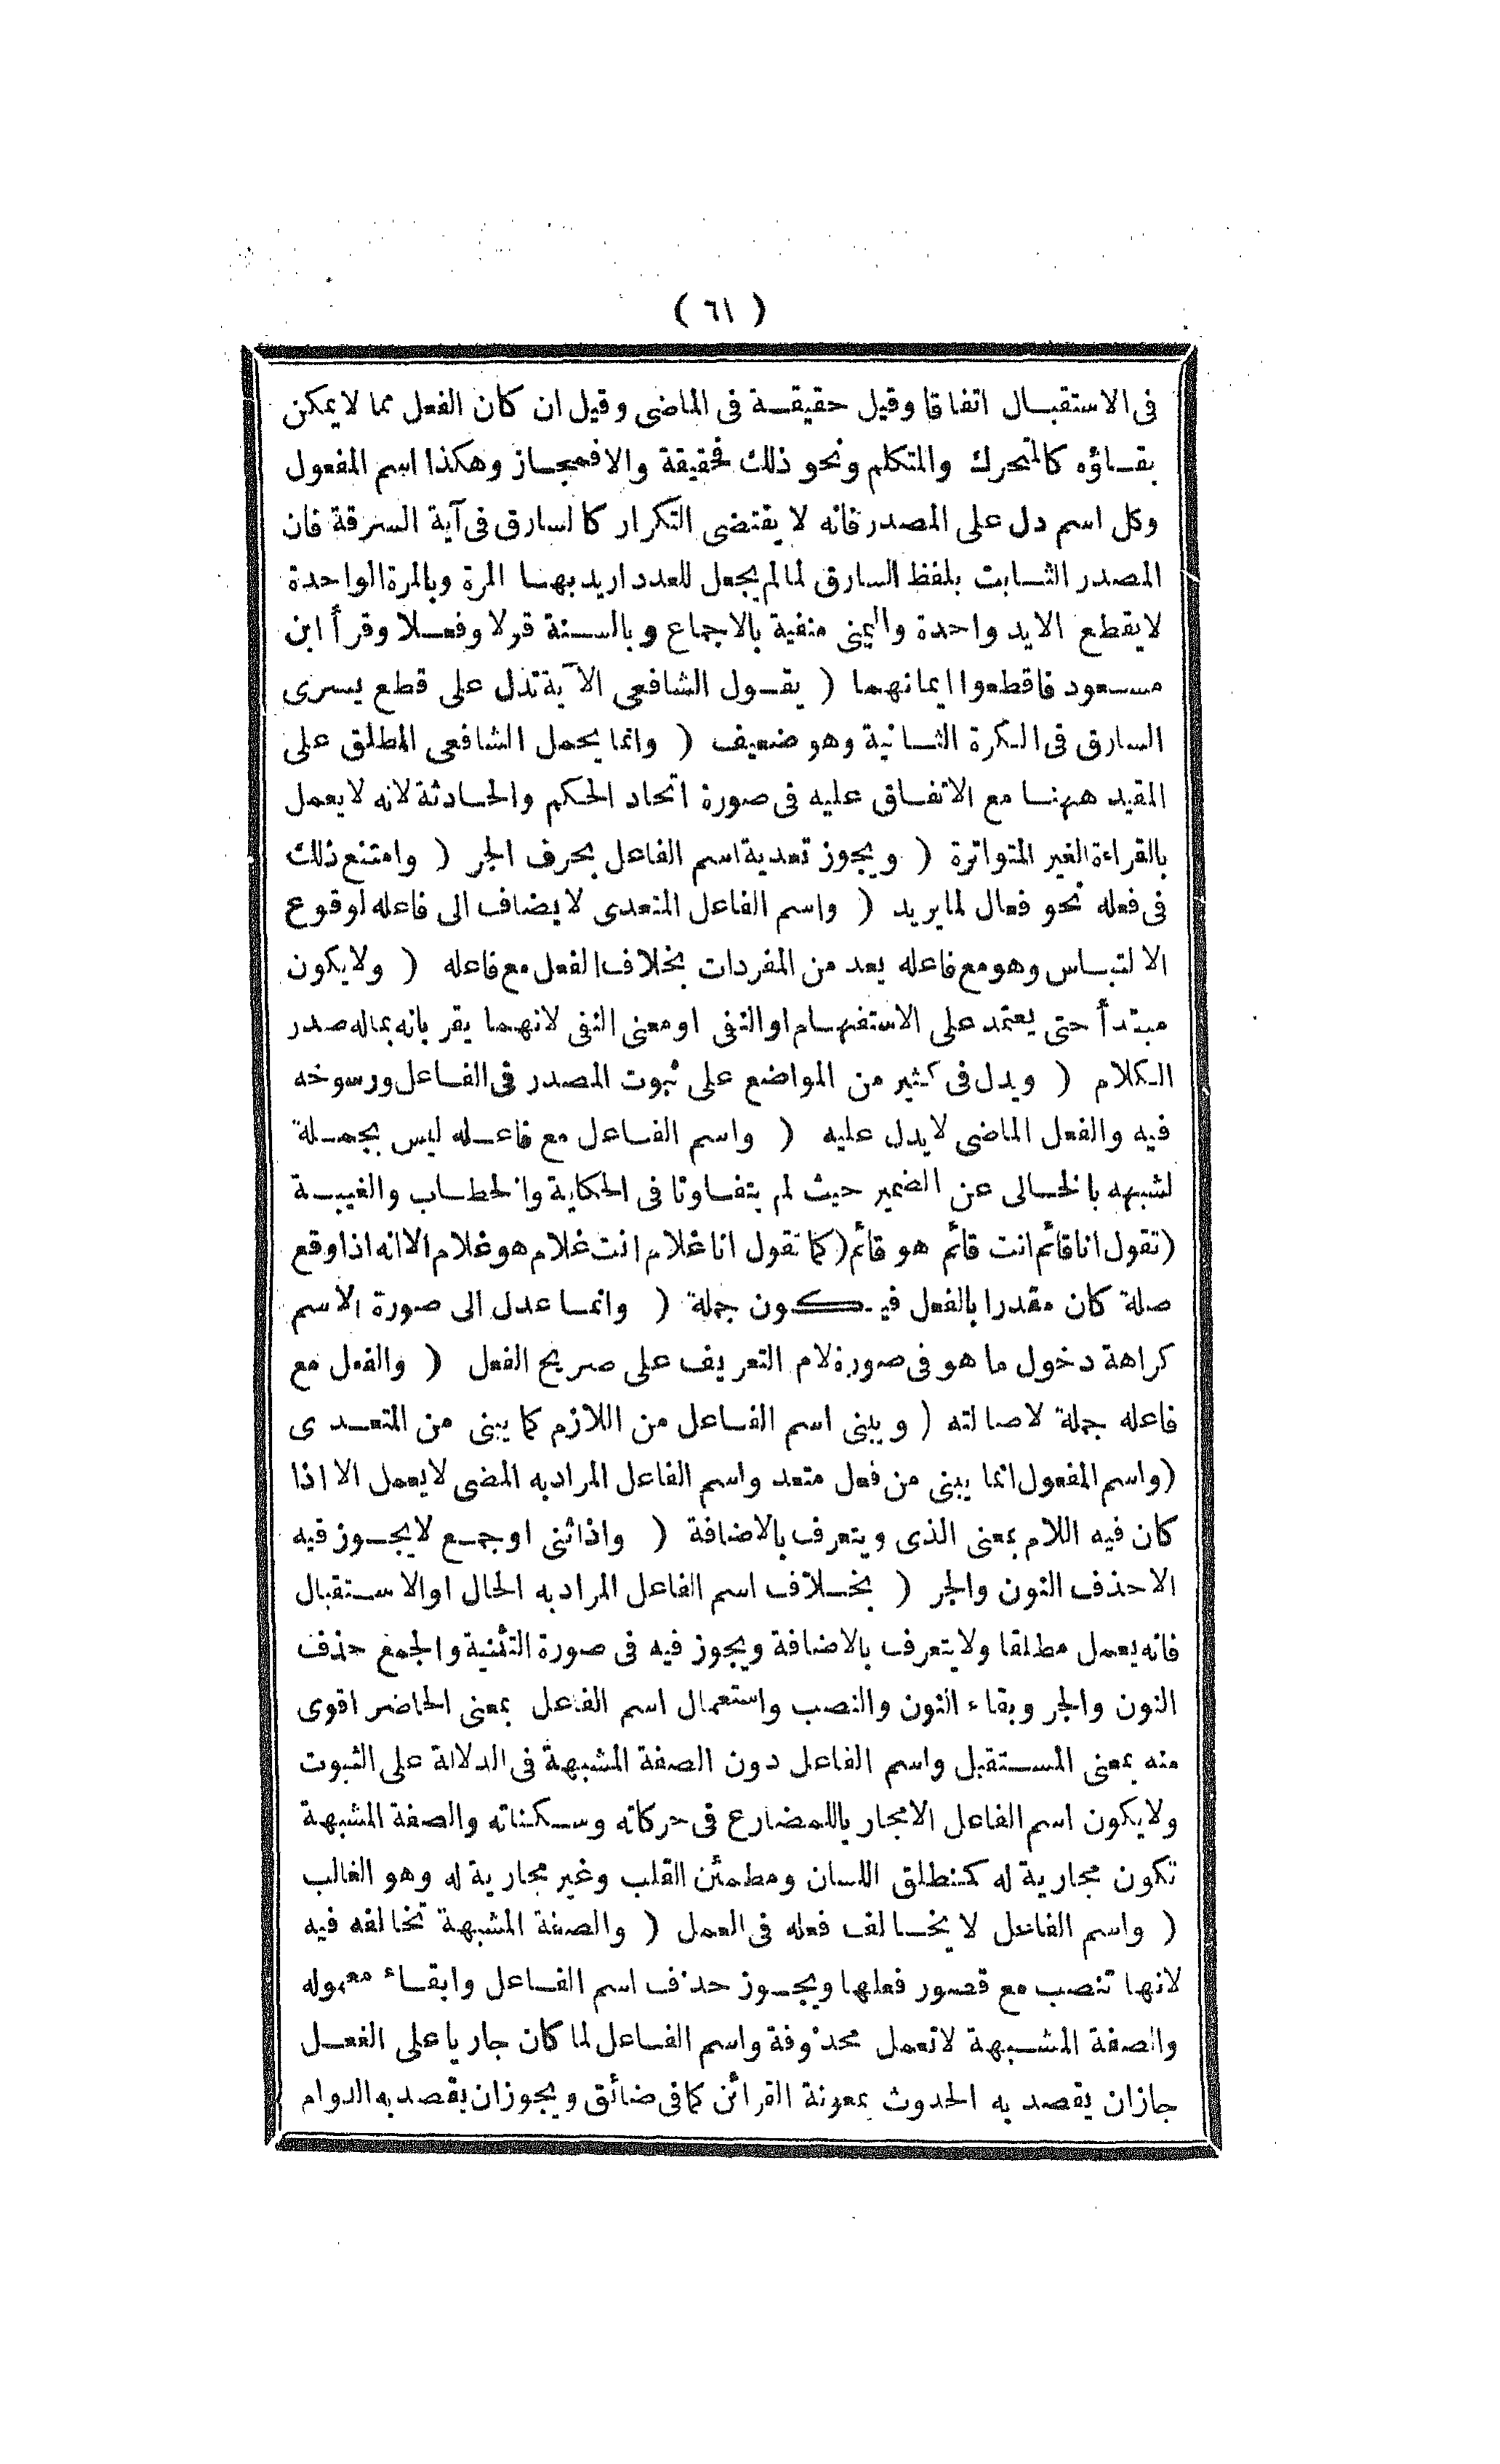 ( ٦١ )
فى الاستقبال اتفاقا وقيل حقيقة فى الماضى وقيل ان كان الفعل مما لا يمكن
بقاؤه كالمتحرك والمتكلم ونحو ذلك فحقيقة والا فمجاز وهكذا اسم المفعول
وكل اسم دل على المصدر فانه لا يقتضى التكرار كالسارق فى آية السرقة فان
المصدر الثابت بلفظ السارق لما لم يجعل للعدد اريد بها المرة وبالمرة الواحدة
لا يقطع الا يد واحدة واليمنى منفية بالاجماع وبالسنة قولا وفعلا وقرأ ابن
مسعود فاقطعوا ايمانهما ( يقول الشافعى الآية تدل على قطع يسرى
السارق فى الكرة الثانية وهو ضعيف ( وانما يحمل الشافعى المطلق على
المقيد ههنا مع الاتفاق عليه فى صورة اتحاد الحكم والحادثة لانه لا يعمل
بالقراءة الغير المتواترة ( ويجوز تعدية اسم الفاعل بحرف الجر ( وامتنع ذلك
فى فعله نحو فعال لما يريد ( واسم الفاعل المتعدى لا يضاف الى فاعله لوقوع
الالتباس وهو مع فاعله يعد من المفردات بخلاف الفعل مع فاعله ( ولا يكون
مبتدأ حتى يعتمد على الاستفهام او النفى او معنى النفى لانهما يقر بانه بماله صدر
الكلام ( ويدل فى كثير من المواضع على ثبوت المصدر فى الفاعل ورسوخه
فيه والفعل الماضى لا يدل عليه ( واسم الفاعل مع فاعله ليس بجملة
لشبهه بالخالى عن الضمير حيث لم يتفاوتا فى الحكاية والخطاب والغيبة
( تقول انا قائم انت قائم هو قائم ( كما تقول انا غلام انت غلام هو غلام الا انه اذا وقع
صلة كان مقدرا بالفعل فيكون جملة ( وانما عدل الى صورة الاسم
كراهة دخول ما هو فى صورة لام التعريف على صريح الفعل ( والفعل مع
فاعله جملة لاصالته ( ويبنى اسم الفاعل من اللازم كما يبنى من المتعدى
( واسم المفعول انما يبنى من فعل متعد واسم الفاعل المراد به المضى لا يعمل الا اذا
كان فيه اللام بمعنى الذى ويتعرف بالاضافة ( واذا ثنى او جمع لا يجوز فيه
الا حذف النون والجر ( بخلاف اسم الفاعل المراد به الحال او الاستقبال
فانه يعمل مطلقا ولا يتعرف بالاضافة ويجوز فيه فى صورة التثنية والجمع حذف
النون والجر وبقاء النون والنصب واستعمال اسم الفاعل بمعنى الحاضر اقوى
منه بمعنى المستقبل واسم الفاعل دون الصفة المشبهة فى الدلالة على الثبوت
ولا يكون اسم الفاعل الا مجاريا للمضارع فى حركاته وسكناته والصفة المشبهة
تكون مجارية له كمنطلق اللسان ومطمئن القلب وغير مجارية له وهو الغالب
( واسم الفاعل لا يخالف فعله فى العمل ( والصفة المشبهة تخالفه فيه
لانها تنصب مع قصور فعلها ويجوز حذف اسم الفاعل وابقاء معموله
والصفة المشبهة لا تعمل محذوفة واسم الفاعل لما كان جاريا على الفعل
جاز ان يقصد به الحدوث بمعونة القرائن كما فى ضائق ويجوز ان يقصد به الدوام